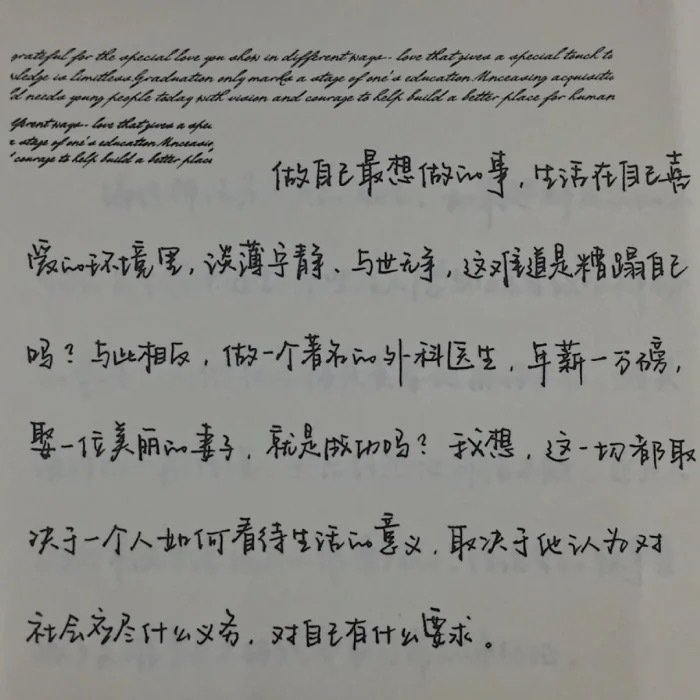 grateful for the special love you show in different ways.. love that gives a special touch to
ledge is limitless.Graduation only marks a stage of one's education.Unceasing acquisitio
ld needs young people today with vision and courage to help build a better place for human
fferent ways.. love that gives a spec
a stage of one's education.Unceasin
courage to help build a better place
做自己最想做的事，生活在自己喜
爱的环境里，淡薄宁静、与世无争，这难道是糟蹋自己
吗？与此相反，做一个著名的外科医生，年薪一万磅，
娶一位美丽的妻子，就是成功吗？我想，这一切都取
决于一个人如何看待生活的意义，取决于他认为对
社会应尽什么义务，对自己有什么要求。